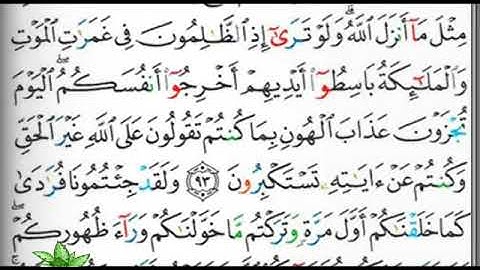 مِثْلَ مَآ أَنزَلَ ٱللَّهُ ۗ وَلَوْ تَرَىٰٓ إِذِ ٱلظَّٰلِمُونَ فِى غَمَرَٰتِ ٱلْمَوْتِ
وَٱلْمَلَٰٓئِكَةُ بَاسِطُوٓا۟ أَيْدِيهِمْ أَخْرِجُوٓا۟ أَنفُسَكُمُ ۖ ٱلْيَوْمَ
تُجْزَوْنَ عَذَابَ ٱلْهُونِ بِمَا كُنتُمْ تَقُولُونَ عَلَى ٱللَّهِ غَيْرَ ٱلْحَقِّ
وَكُنتُمْ عَنْ ءَايَٰتِهِۦ تَسْتَكْبِرُونَ ٩٣ وَلَقَدْ جِئْتُمُونَا فُرَٰدَىٰ
كَمَا خَلَقْنَٰكُمْ أَوَّلَ مَرَّةٍ وَتَرَكْتُم مَّا خَوَّلْنَٰكُمْ وَرَآءَ ظُهُورِكُمْ ۖ